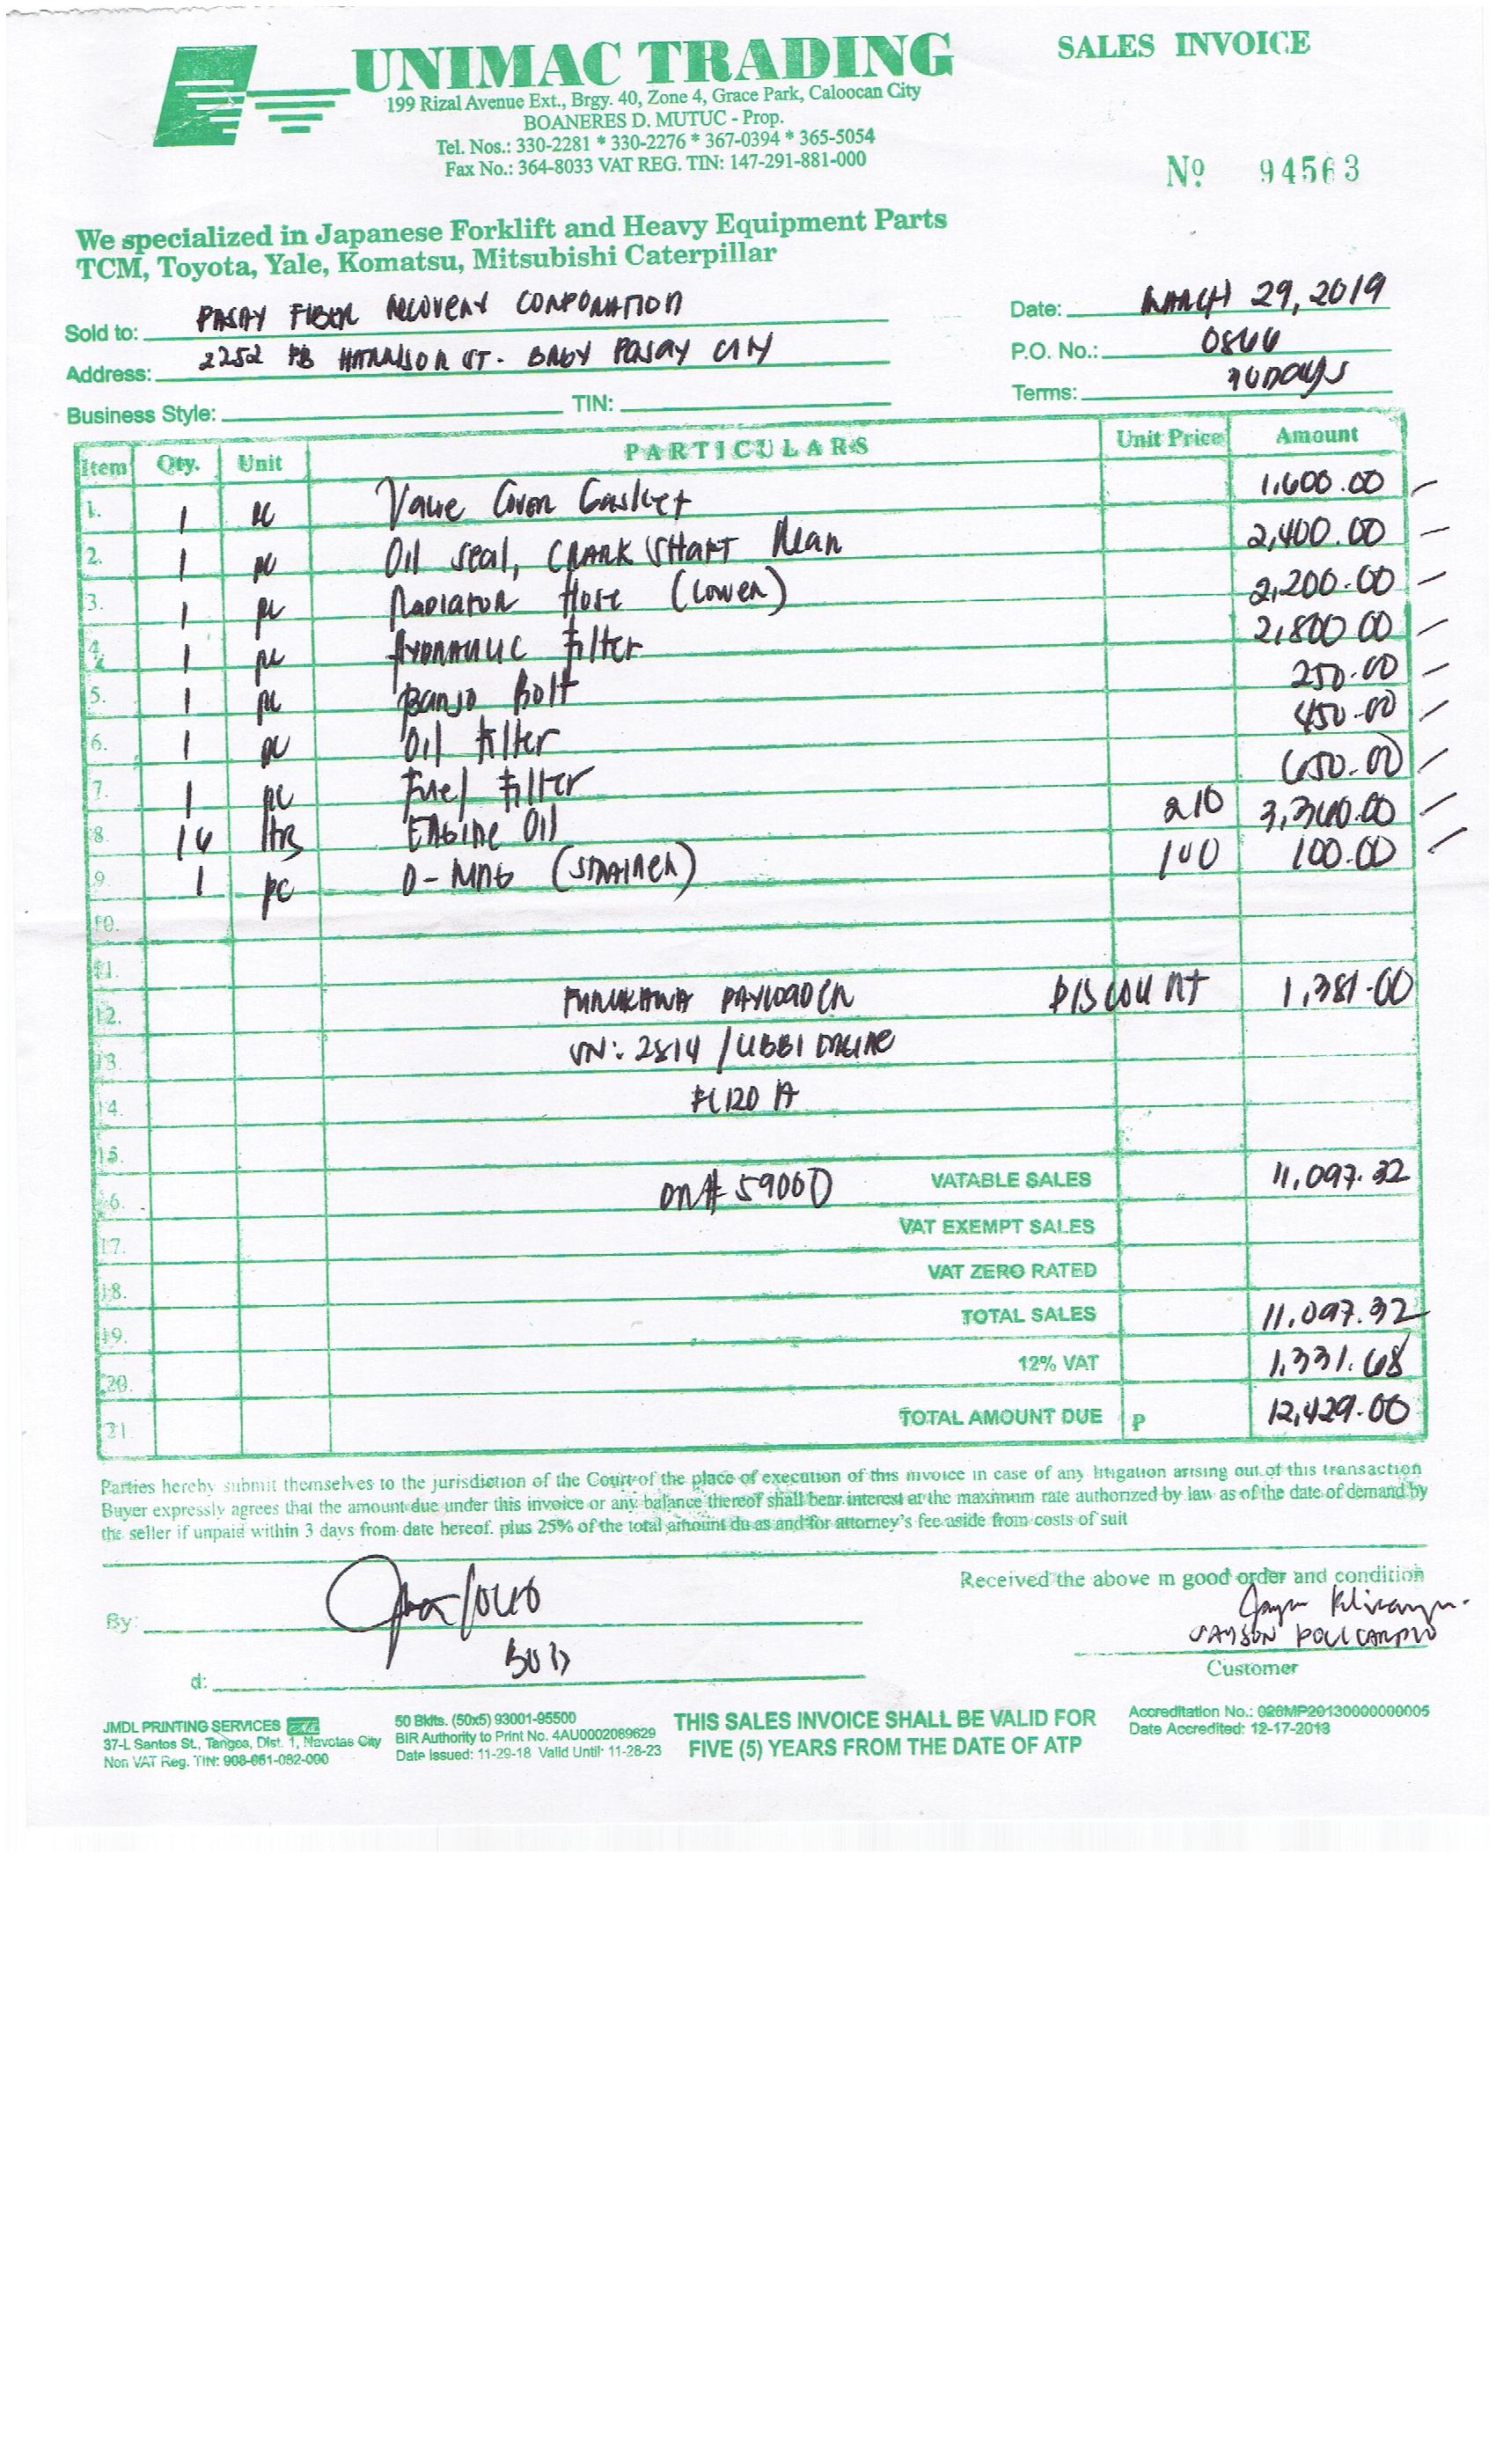 UNIMAC TRADING
SALES INVOICE
199 Rizal Avenue Ext., Brgy. 40, Zone 4, Grace Park, Caloocan City
BOANERES D. MUTUC - Prop.
Tel. Nos.: 330-2281 * 330-2276 * 367-0394 * 365-5054
Fax No.: 364-8033 VAT REG. TIN: 147-291-881-000
Nº 94563
We specialized in Japanese Forklift and Heavy Equipment Parts
TCM, Toyota, Yale, Komatsu, Mitsubishi Caterpillar
Sold to: PASAY FIBER RECOVERY CORPORATION
Date: MARCH 29, 2019
Address: 2252 FB HARRISON ST. BRGY PASAY CITY
P.O. No.: 0866
Business Style: TIN:
Terms: Days
Item Qty. Unit PARTICULARS Unit Price Amount
1. 1 pc Valve Cover Gasket 1,600.00
2. 1 pc Oil Seal, CRANKSHAFT Rear 2,400.00
3. 1 pc RADIATOR Hose (Lower) 2,200.00
4. 1 pc HYDRAULIC Filter 2,800.00
5. 1 pc Banjo Bolt 250.00
6. 1 pc Oil Filter 450.00
7. 1 pc Fuel Filter 650.00
8. 16 ltrs ENGINE Oil 210 3,360.00
9. 1 pc O-RING (STRAINER) 100 100.00
10.
11.
12. FURUKAWA PAYLOADER DISCOUNT 1,381.00
13. SN: 2814 / 6BB1 ENGINE
14. FL120 A
15.
16. DR# 59000 VATABLE SALES 11,097.32
17. VAT EXEMPT SALES
18. VAT ZERO RATED
19. TOTAL SALES 11,097.32
20. 12% VAT 1,331.68
21. TOTAL AMOUNT DUE P 12,429.00
Parties hereby submit themselves to the jurisdiction of the Court of the place of execution of this invoice in case of any litigation arising out of this transaction
Buyer expressly agrees that the amount due under this invoice or any balance thereof shall bear interest at the maximum rate authorized by law as of the date of demand by
the seller if unpaid within 3 days from date hereof. plus 25% of the total amount du as and for attorney's fee aside from costs of suit
Received the above in good order and condition
By:
JAYSON POLICARPIO
d:
Customer
JMDL PRINTING SERVICES
37-L Santos St., Tangos, Dist. 1, Navotas City
Non VAT Reg. TIN: 908-661-082-000
50 Bklts. (50x5) 93001-95500
BIR Authority to Print No. 4AU0002089629
Date Issued: 11-29-18 Valid Until: 11-28-23
THIS SALES INVOICE SHALL BE VALID FOR
FIVE (5) YEARS FROM THE DATE OF ATP
Accreditation No.: 026MP20130000000005
Date Accredited: 12-17-2013